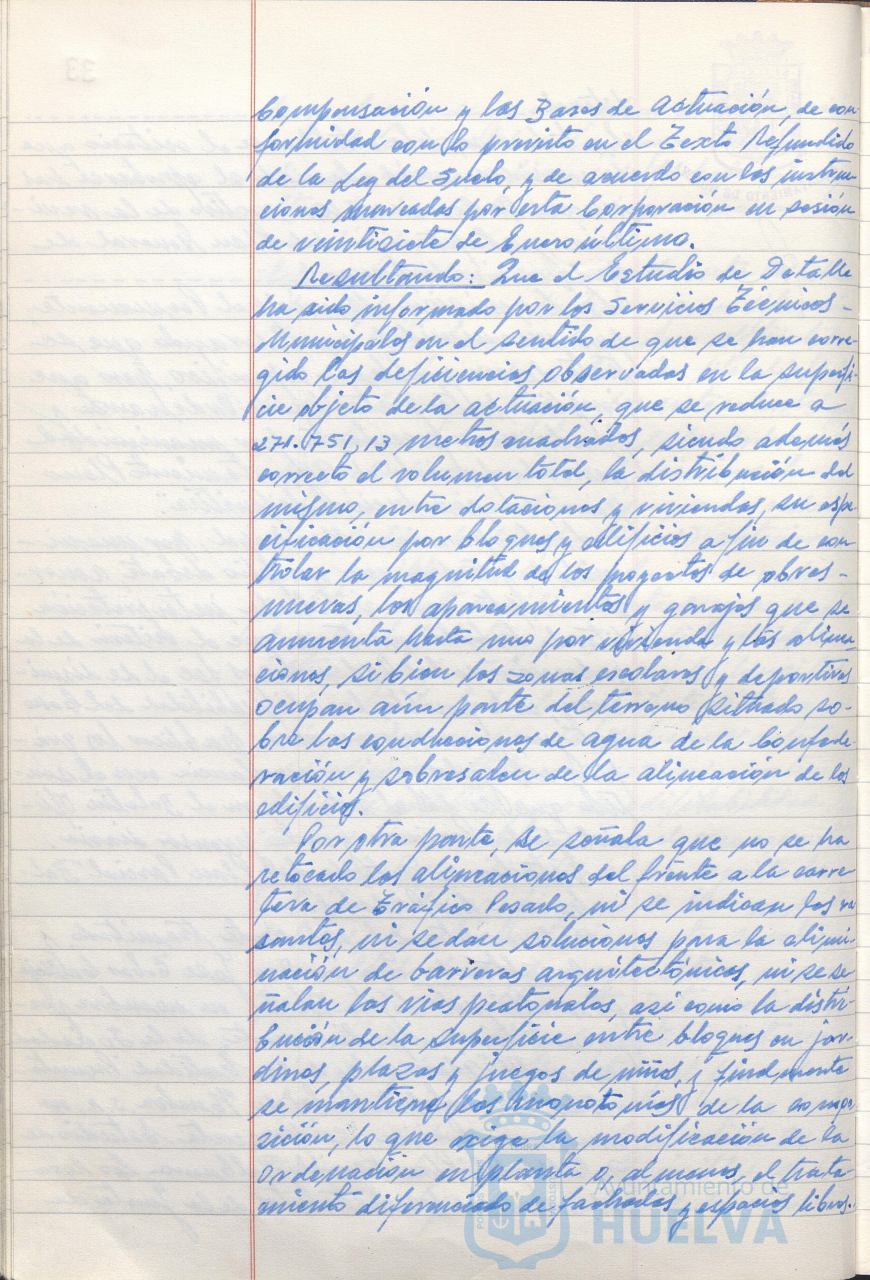 Compensación y las Bases de Actuación, de con-
formidad con lo previsto en el Texto Refundido
de la Ley del Suelo, y de acuerdo con las instruc-
ciones marcadas por esta Corporación en sesión
de veintisiete de Enero último.
Resultando: Que el Estudio de Detalle
ha sido informado por los Servicios Técnicos-
Municipales en el sentido de que se han corre-
gido las deficiencias observadas en la superfi-
cie objeto de la actuación, que se reduce a
271.751,13 metros cuadrados, siendo además
correcto el volumen total, la distribución del
mismo, entre dotaciones y viviendas, su espe-
cificación por bloques y edificios a fin de con-
trolar la magnitud de los proyectos de obras-
nuevas, los aparcamientos y garajes que se
aumenta hasta uno por vivienda y las alinea-
ciones, si bien las zonas escolares y deportivas
ocupan aún parte del terreno situado so-
bre las conducciones de agua de la Confede-
ración y sobresalen de la alineación de los
edificios.
Por otra parte, se señala que no se ha
retocado las alineaciones del frente a la carre-
tera de Tráfico Pesado, ni se indican las ra-
santes, ni se dan soluciones para la elimi-
nación de barreras arquitectónicas, ni se se-
ñalan las vías peatonales, así como la distri-
bución de la superficie entre bloques en jar-
dines, plazas y juegos de niños, y finalmente
se mantiene las monotonías de la compo-
sición, lo que exige la modificación de la
ordenación en planta o, al menos, el trata-
miento diferenciado de fachadas y espacios libres.
Ayuntamiento de
HUELVA